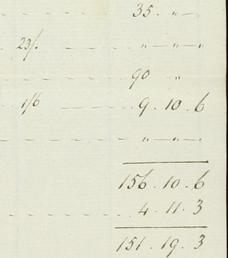 35 . " —
23/. " — " —
90 "
1/6 9 . 10 . 6
" — " —
156 . 10 . 6
4 . 11 . 3
151 . 19 . 3